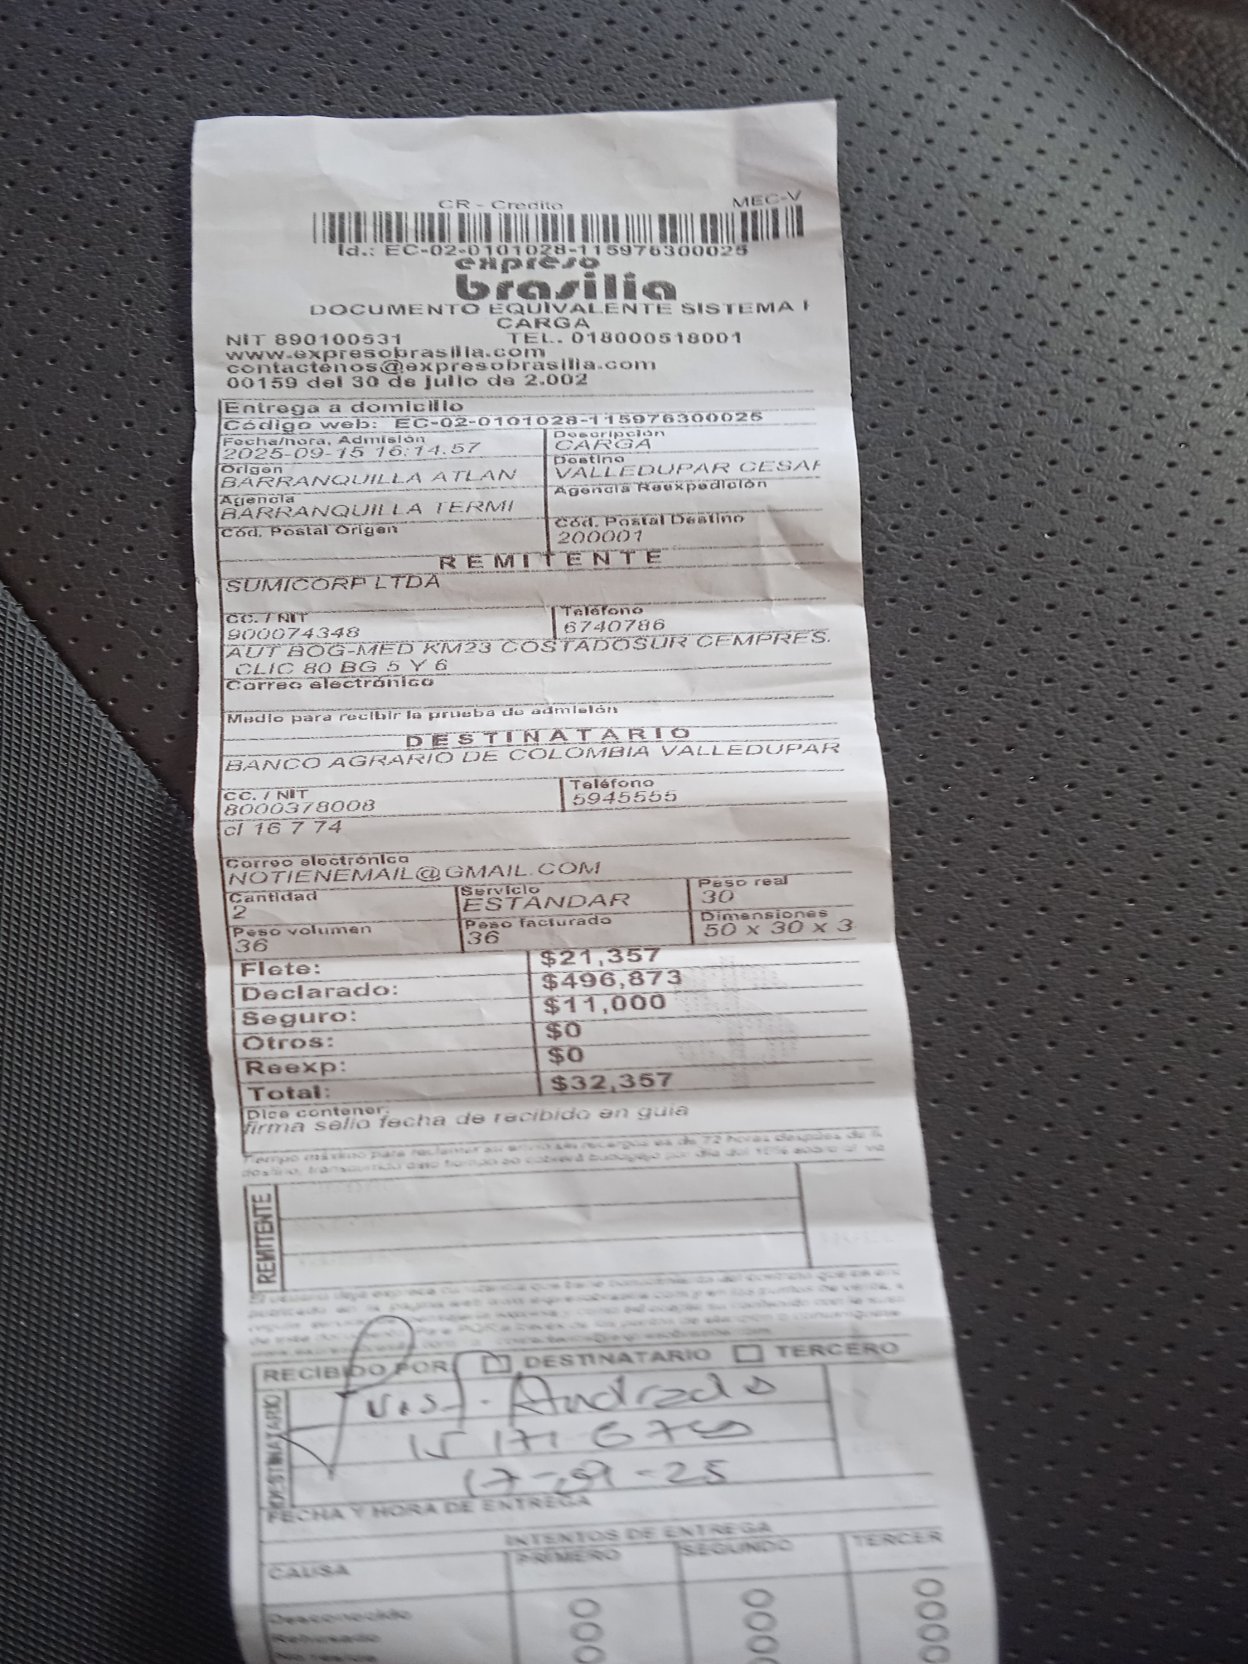 CR - Credito MEC-V
Id.: EC-02-0101028-115976300025
expreso
brasilia
DOCUMENTO EQUIVALENTE SISTEMA
CARGA
NIT 890100531 TEL. 018000518001
www.expresobrasilia.com
contactenos@expresobrasilia.com
00159 del 30 de julio de 2.002
Entrega a domicilio
Código web: EC-02-0101028-115976300025
Fecha/hora, Admisión Descripción
2025-09-15 16:14:57 CARGA
Origen Destino
BARRANQUILLA ATLAN VALLEDUPAR CESAR
Agencia Agencia Reexpedición
BARRANQUILLA TERMI
Cód. Postal Origen Cód. Postal Destino
200001
REMITENTE
SUMICORP LTDA
CC. / NIT Teléfono
900074348 6740786
AUT BOG-MED KM23 COSTADOSUR CEMPRES.
CLIC 80 BG 5 Y 6
Correo electrónico
Medio para recibir la prueba de admisión
DESTINATARIO
BANCO AGRARIO DE COLOMBIA VALLEDUPAR
CC. / NIT Teléfono
8000378008 5945555
cl 16 7 74
Correo electrónico
NOTIENEMAIL@GMAIL.COM
Cantidad Servicio Peso real
2 ESTANDAR 30
Peso volumen Peso facturado Dimensiones
36 36 50 x 30 x 3
Flete: $21,357
Declarado: $496,873
Seguro: $11,000
Otros: $0
Reexp: $0
Total: $32,357
Dice contener:
firma sello fecha de recibido en guia
Tiempo máximo para reclamar su envío sin recargos es de 72 horas después de
destino, transcurrido este tiempo se cobrará bodegaje por día del 10% sobre el
REMITENTE
RECIBIDO POR DESTINATARIO TERCERO
DESTINATARIO
Andrade
17-09-25
FECHA Y HORA DE ENTREGA
INTENTOS DE ENTREGA
CAUSA PRIMERO SEGUNDO TERCER
Desconocido
Rehusado
No reside